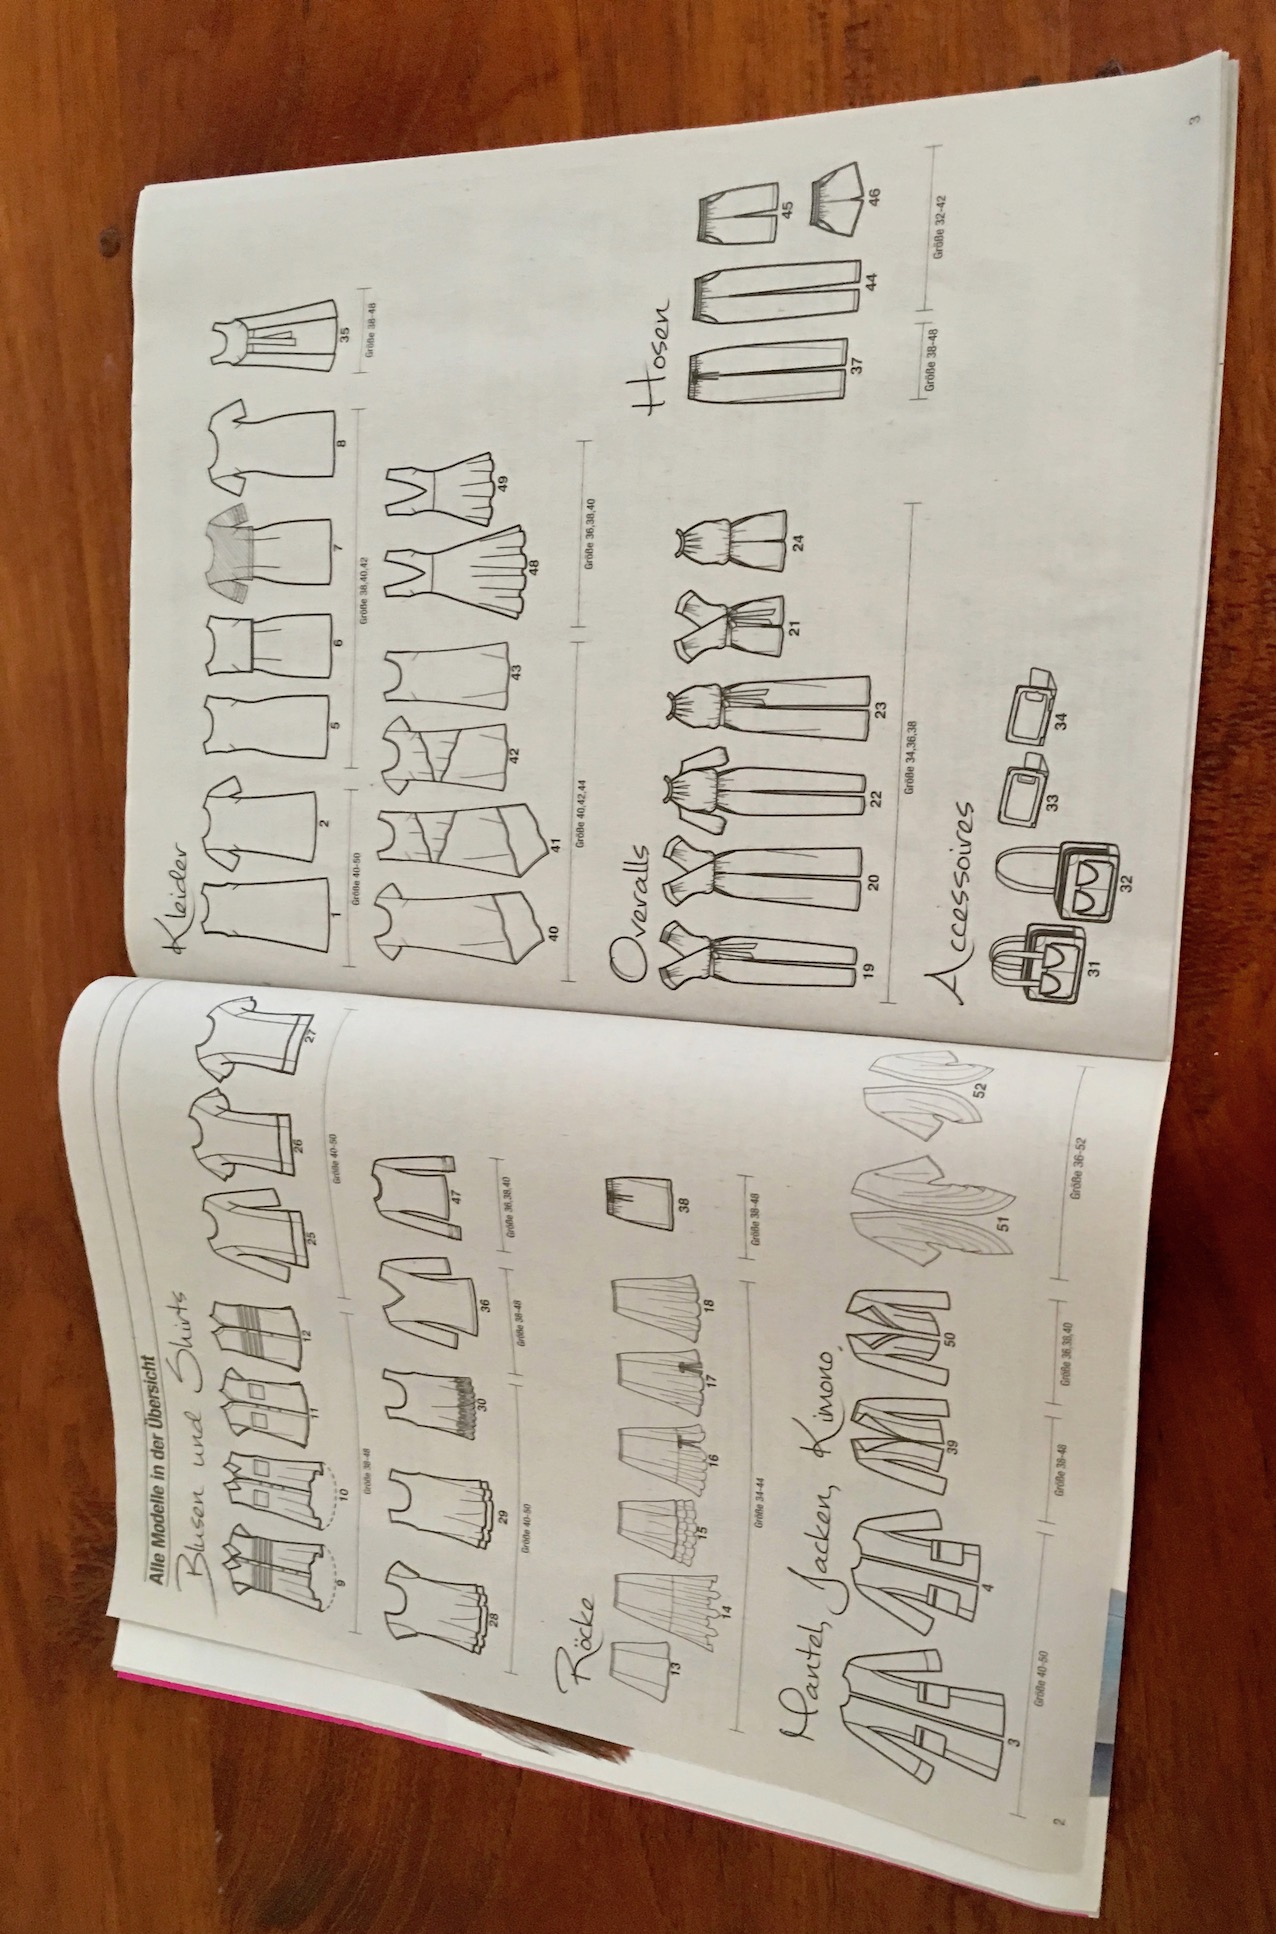 Alle Modelle in der Übersicht
Blusen und Shirts
9 10 11 12 25 26 27
Größe 38-48 Größe 40-50
28 29 30 36 47
Größe 40-50 Größe 38-48 Größe 36,38,40
Röcke
13 14 15 16 17 18 38
Größe 34-44 Größe 38-48
Mantel, Jacken, Kimono
3 4 39 50 51 52
Größe 40-50 Größe 38-48 Größe 36,38,40 Größe 36-52
2
Kleider
1 2 5 6 7 8 35
Größe 40-50 Größe 38,40,42 Größe 38-48
40 41 42 43 48 49
Größe 40,42,44 Größe 36,38,40
Overalls
19 20 22 23 21 24
Größe 34,36,38
Hosen
37 44 45 46
Größe 38-48 Größe 32-42
Accessoires
31 32 33 34
3